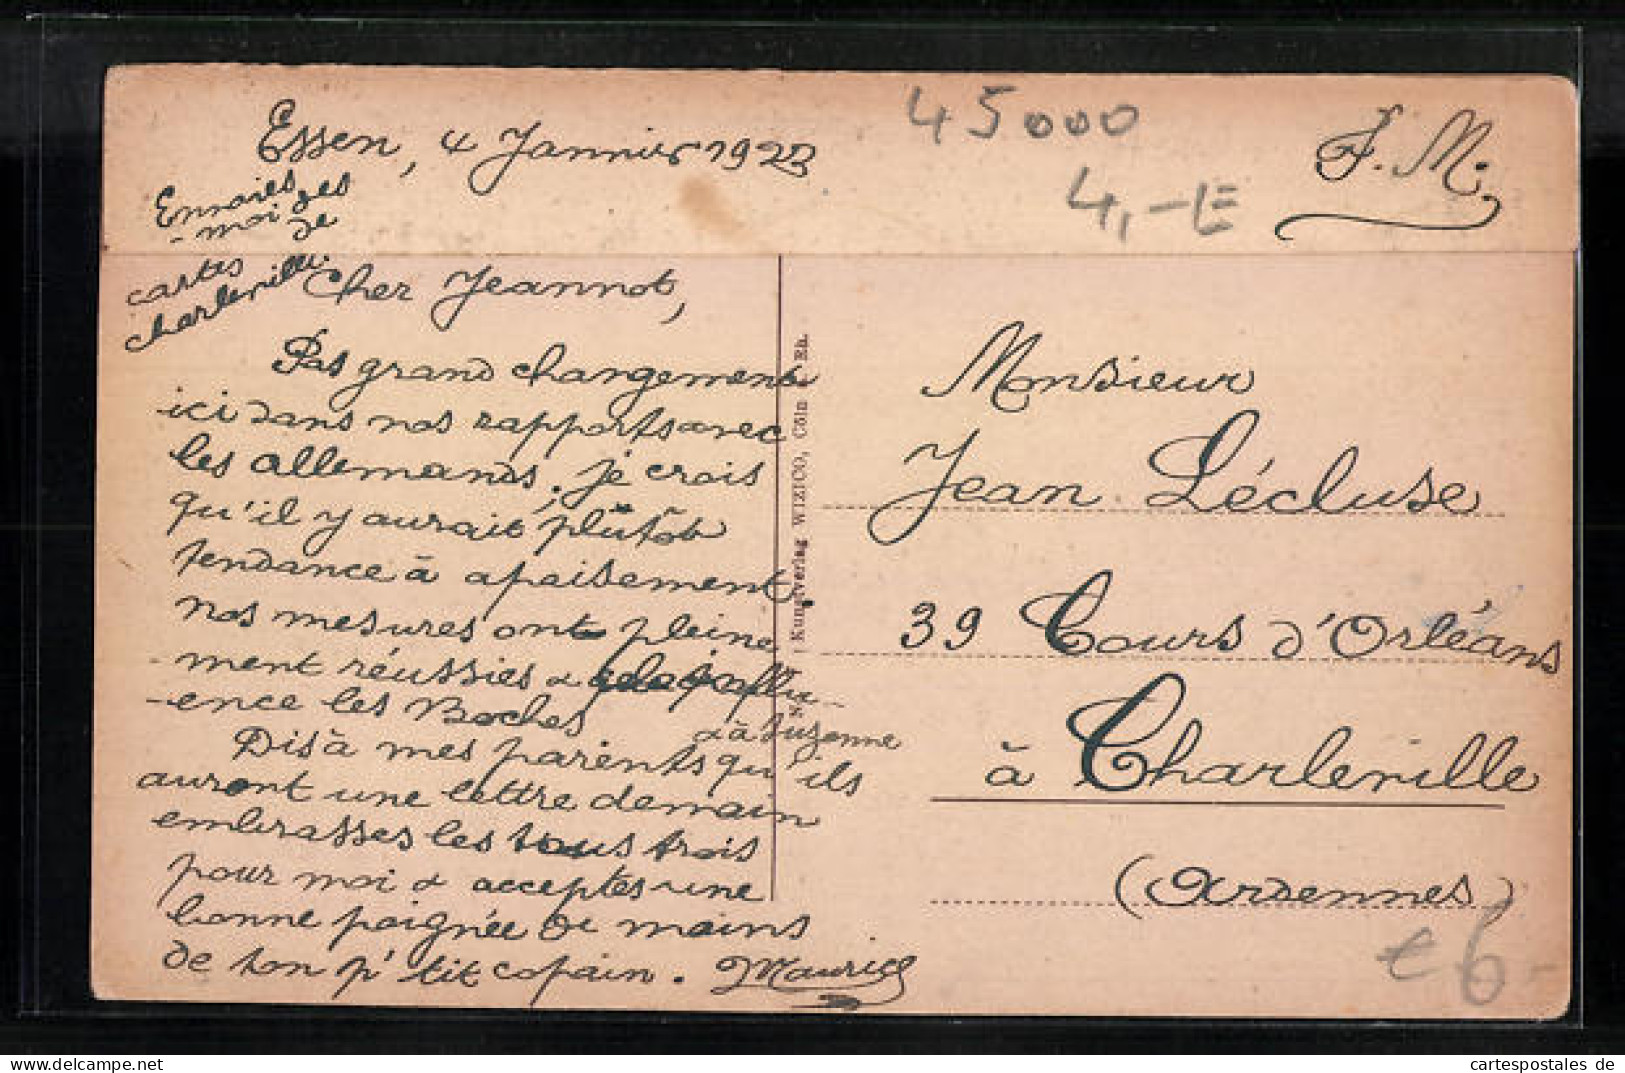 Essen, 4 Janvier 1923
45000
F. M.
4,-E
Envoies
-moi des
cartes de
Charleville.
Cher Jeannot,
Pas grand changement
ici dans nos rapports avec
les allemands, je crois
qu'il y aurait plutôt
tendance à apaisement.
nos mesures ont pleine
-ment réussies &
-ence les Boches
& à Suzanne
Dis à mes parents qu'ils
auront une lettre demain
embrasses les tous trois
pour moi & acceptes une
bonne poignée de mains
de ton p'tit copain. Maurice
Kunstverlag WIZICO, Cöln a. Rh.
Monsieur
Jean Lécluse
39 Cours d'Orléans
à Charleville
(Ardennes)
€ 6-
cartespostales de